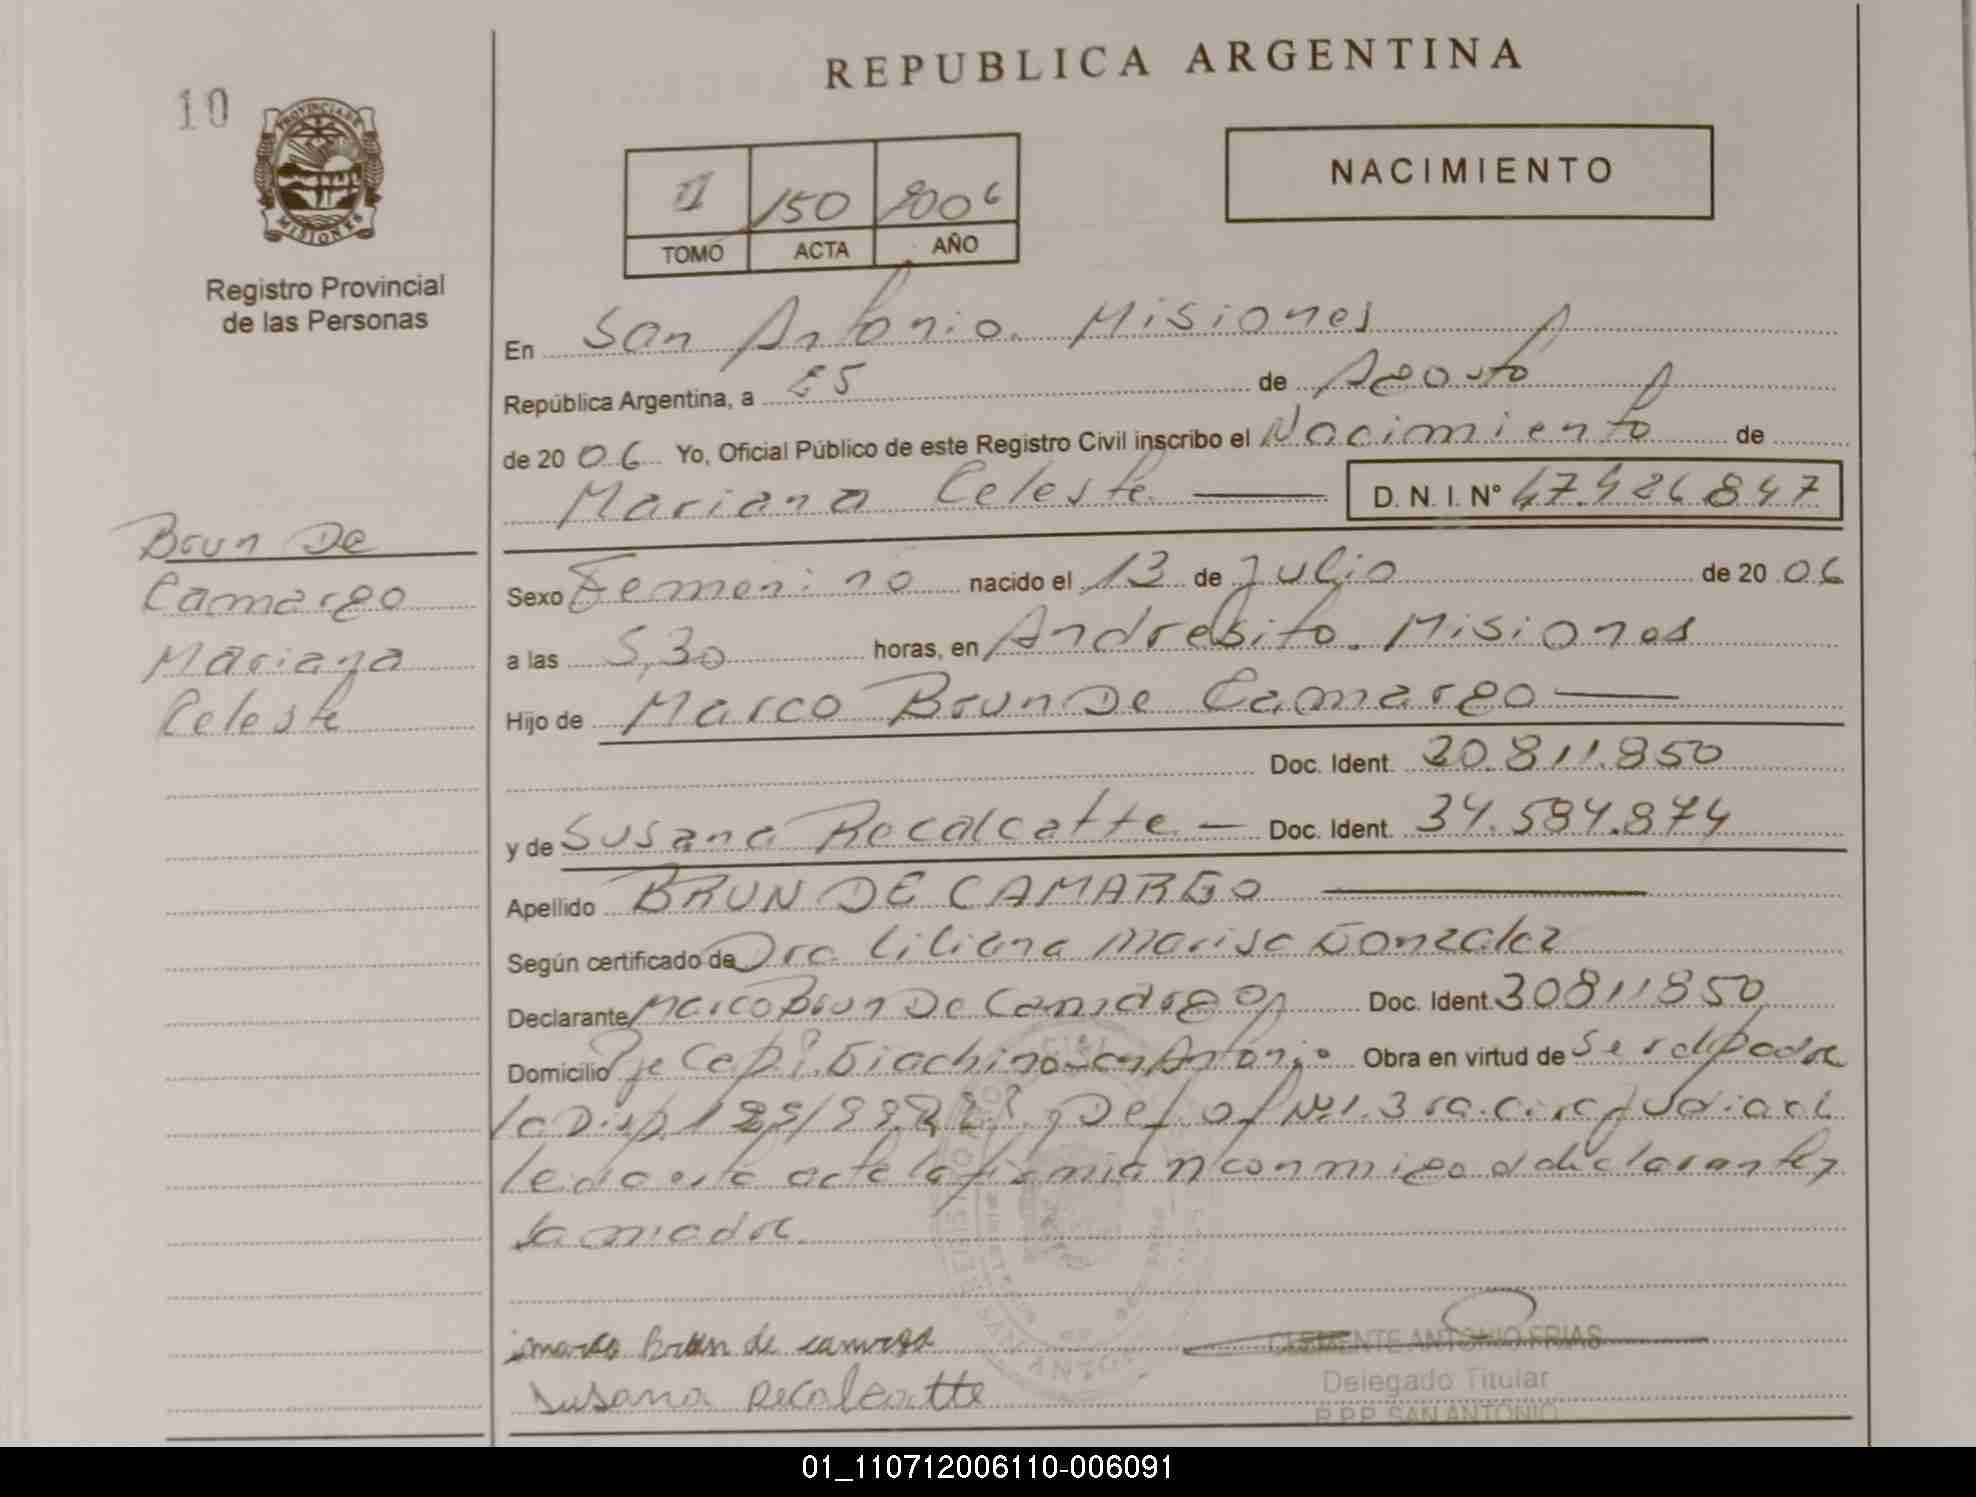 REPUBLICA ARGENTINA
10
PROVINCIA DE
MISIONES
Registro Provincial
de las Personas
II 150 2006
TOMO ACTA AÑO
NACIMIENTO
En San Antonio. Misiones
República Argentina, a 25 de Agosto
de 2006 Yo, Oficial Público de este Registro Civil inscribo el Nacimiento de
Mariana Celeste D. N. I. Nº 47.426847
Brun De
Camargo
Mariana
Celeste
Sexo Femenino nacido el 13 de Julio de 2006
a las 5,30 horas, en Andresito. Misiones
Hijo de Marco Brun De Camargo
Doc. Ident. 30.811.850
y de Susana Recalcatte Doc. Ident. 34.584.874
Apellido BRUN DE CAMARGO
Según certificado de Dra Liliana Marisa Gonzalez
Declarante Marco Brun De Camargo Doc. Ident. 30811850
Domicilio Pje Cap. Giachino San Antonio Obra en virtud de Ser el Padre
la Disp. Def. of Nº1. 3ra. circ. Judicial
leida esta acta la firman conmigo el declarante y
la madre
marco Brun de camargo
Susana Recalcatte
CLEMENTE ANTONIO FRIAS
Delegado Titular
R.P.P. SAN ANTONIO
01_110712006110-006091